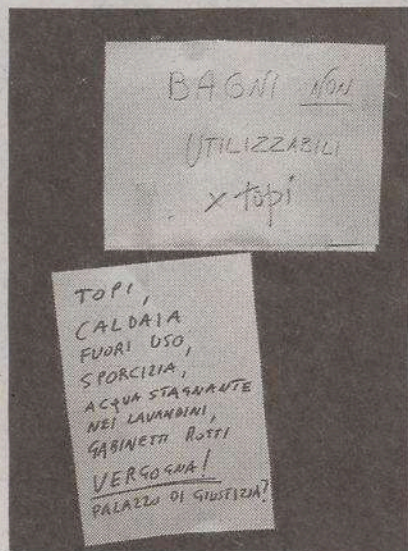 BAGNI NON
UTILIZZABILI
x topi
TOPI,
CALDAIA
FUORI USO,
SPORCIZIA,
ACQUA STAGNANTE
NEI LAVANDINI,
GABINETTI ROTTI
VERGOGNA!
PALAZZO DI GIUSTIZIA?